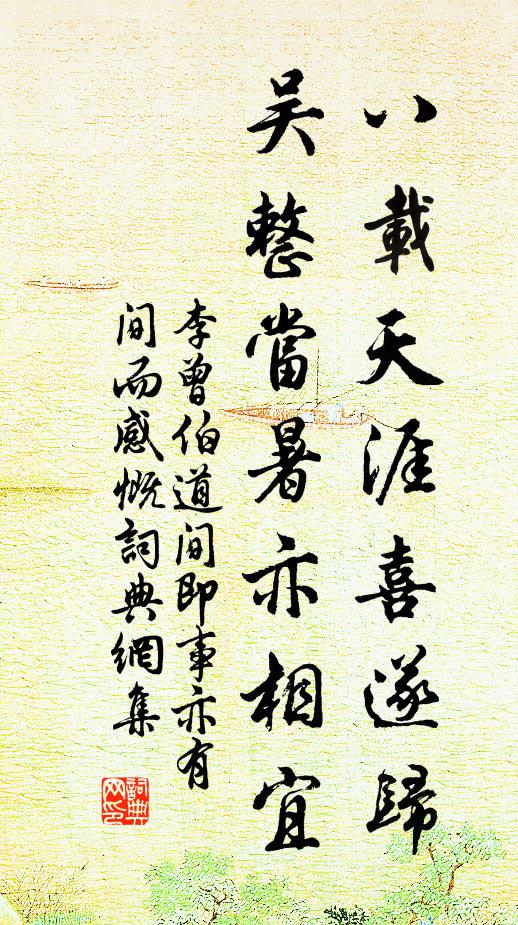 八載天涯喜遂歸
吴整當暑亦相宜
李曾伯道间即事亦有
间而感慨詞典網集
詞典
网印